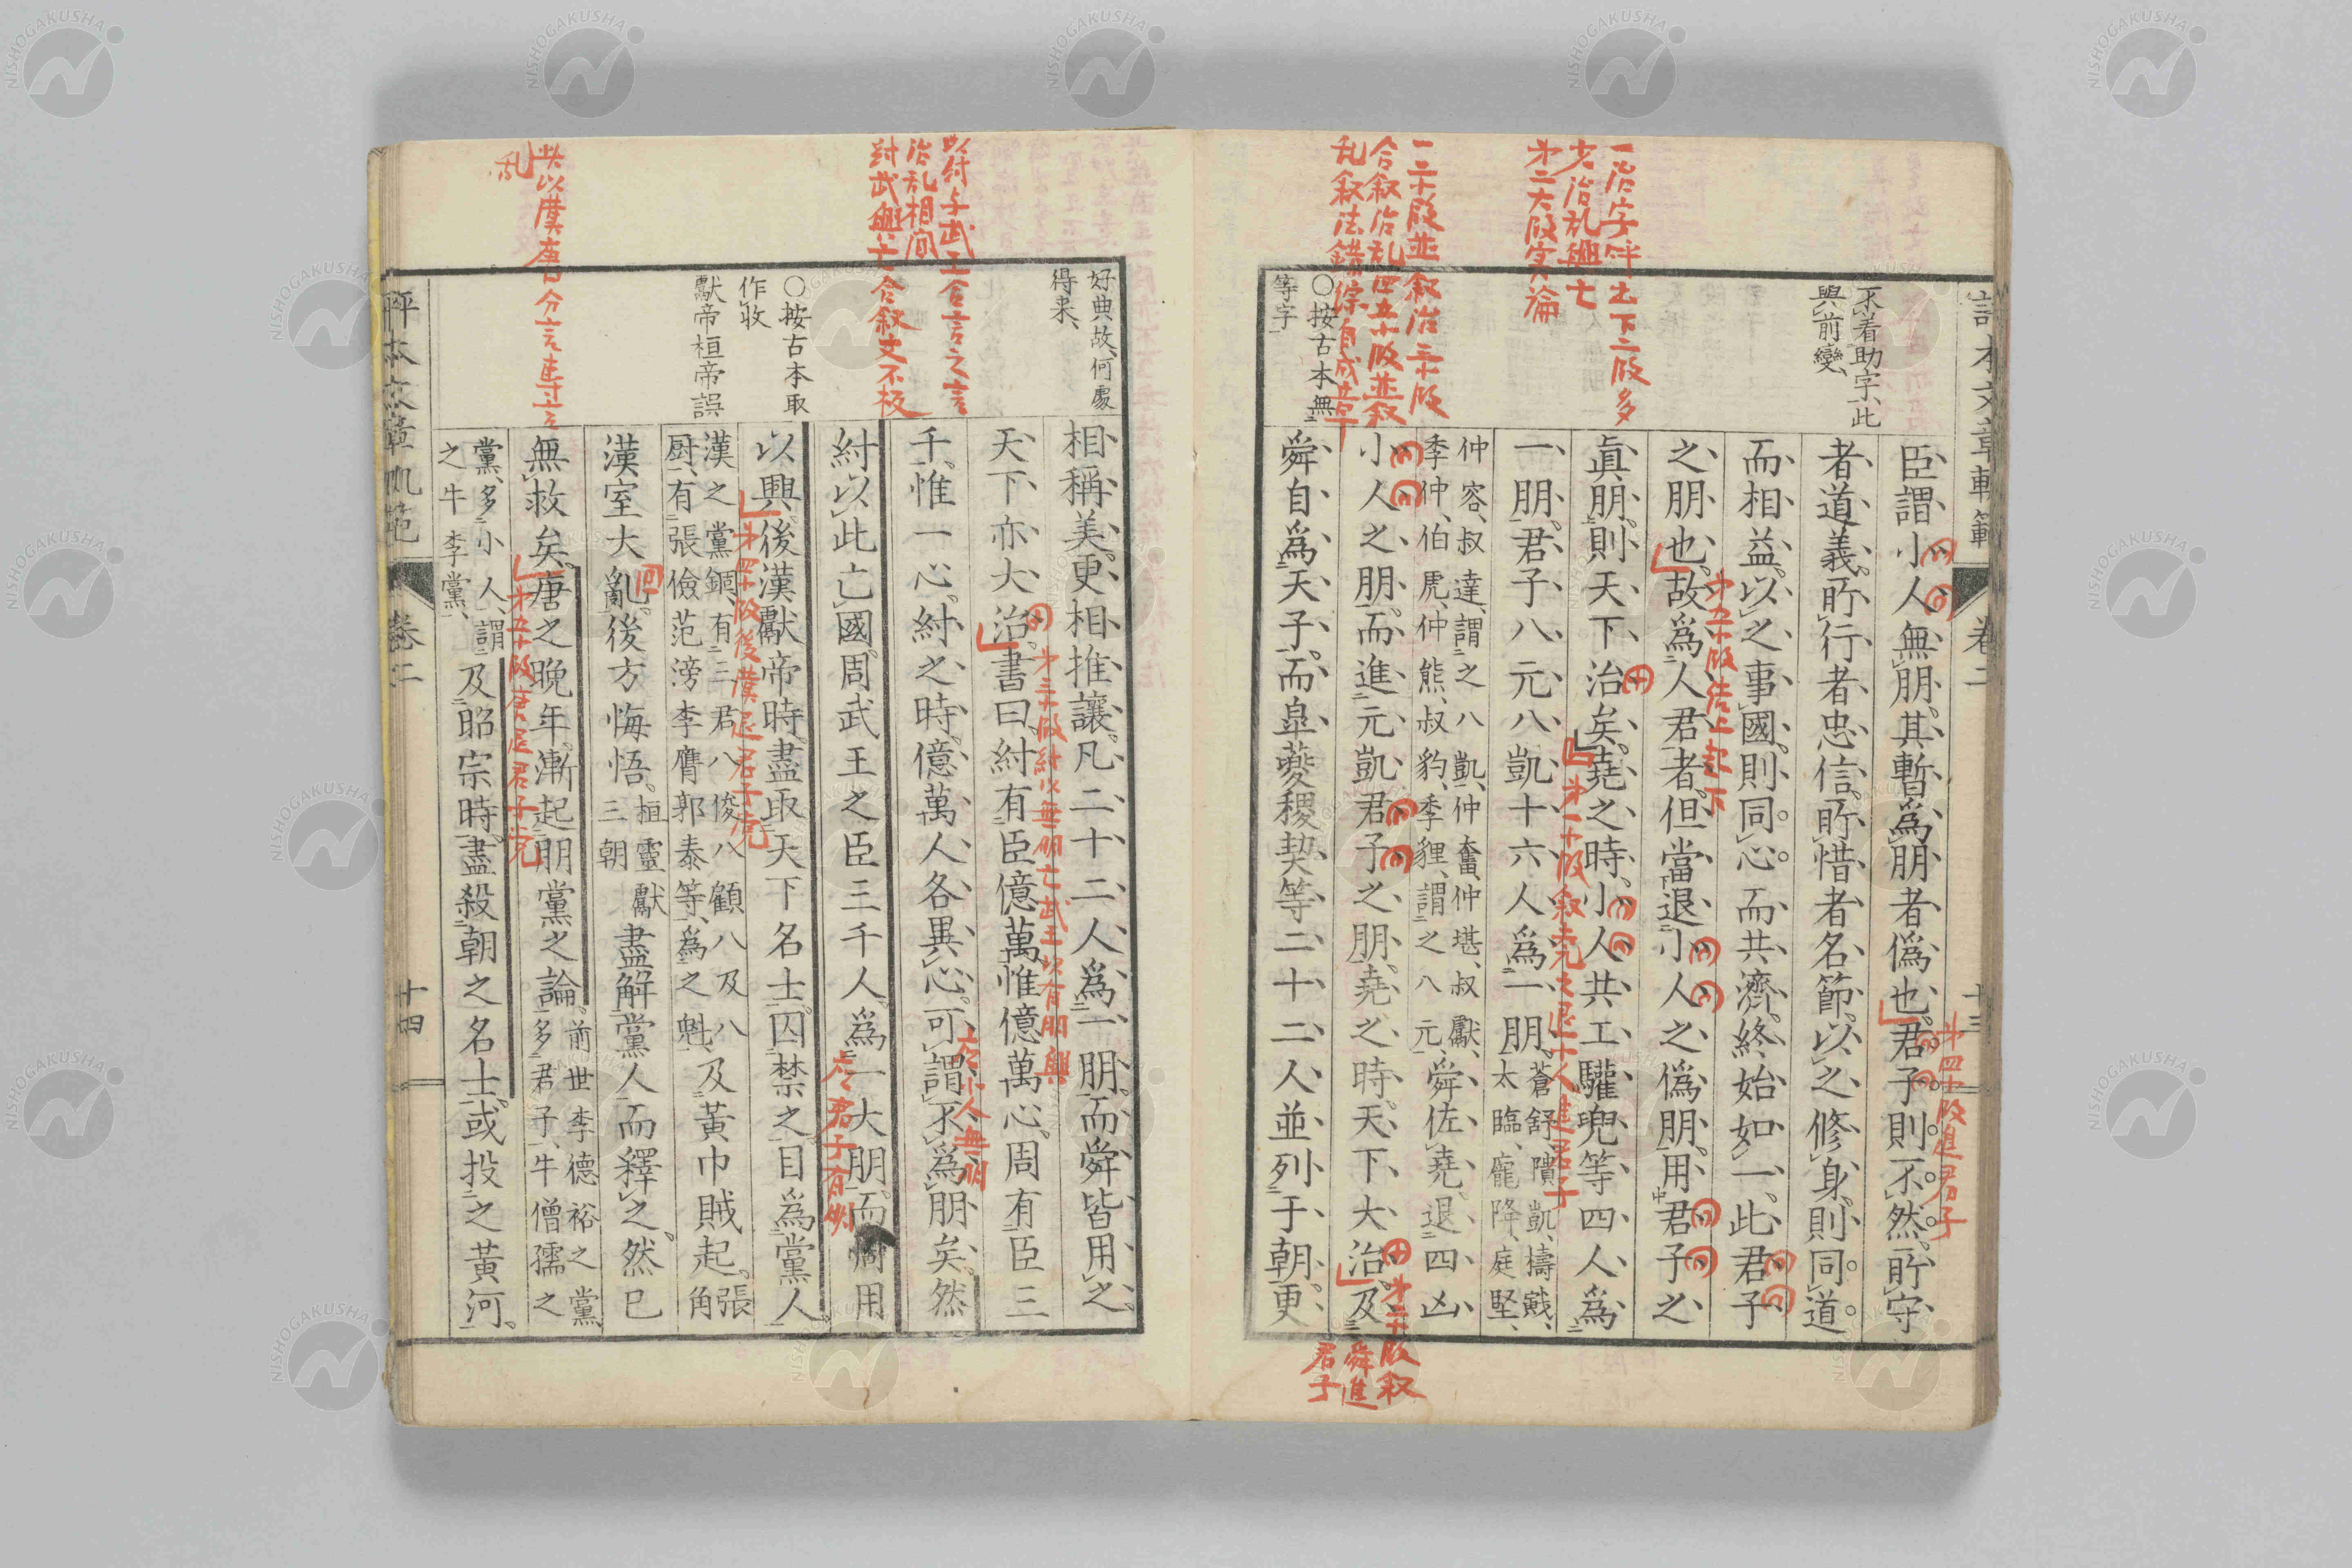 評本文章軌範
卷二
十三
不着助字、此
與前變、
臣謂小人無朋。其暫爲朋者僞也。君子則不然。所守
者道義。所行者忠信。所惜者名節。以之修身。則同道
而相益。以之事國。則同心而共濟。終始如一、此君子
之朋也。故爲人君者。但當退小人之僞朋。用君子之
眞朋。則天下治矣。堯之時、小人共工驩兜等四人爲
一朋。君子八元八凱十六人爲一朋。蒼舒、隤凱、檮戭、
太臨、龐降、庭堅、
仲容、叔達、謂之八凱、仲奮、仲堪、叔獻、
季仲、伯虎、仲熊、叔豹、季貍、謂之八元、舜佐堯、退四凶
小人之朋。而進元凱君子之朋。堯之時、天下大治。及
舜自爲天子。而皐夔稷契等二十二人並列于朝。更
○按古本無
等字
一治字呼起下二段多
少治乱興亡
第二大段実論
一二小段並叙治三小段
合叙治乱四五小段並叙
乱叙法錯綜自成章
第四小段進君子
第五小段結上起下
第一小段叙堯之退小人進君子
第二小段叙
舜進
君子
好典故、何處
得来、
相稱美。更相推讓。凡二十二人爲一朋。而舜皆用之。
天下亦大治。書曰。紂有臣億萬。惟億萬心。周有臣三
千。惟一心。紂之時。億萬人各異心。可謂不爲朋矣。然
紂以此亡國。周武王之臣三千人。爲一大朋。而周用
以興。後漢獻帝時。盡取天下名士。囚禁之。目爲黨人。
○按古本取
作收
獻帝桓帝誤
漢之黨錮、有三君八俊八顧八及八
厨、有張儉范滂李膺郭泰等、爲之魁、及黃巾賊起。張
角
漢室大亂。後方悔悟。桓靈獻
三朝 盡解黨人而釋之。然已
無救矣。唐之晚年。漸起朋黨之論。前世李德裕之黨
多君子、牛僧孺之
黨、多小人、謂
之牛李黨、及昭宗時。盡殺朝之名士。或投之黃河。
以紂与武王合言之言
治乱相間
紂武興亡合叙文不板
此以漢唐分言専言
乱
第三小段紂以無朋亡武王以有朋興
是小人無朋
是君子有朋
第四小段後漢退君子党
第五小段唐退君子党
評本文章軌範
卷二
十四